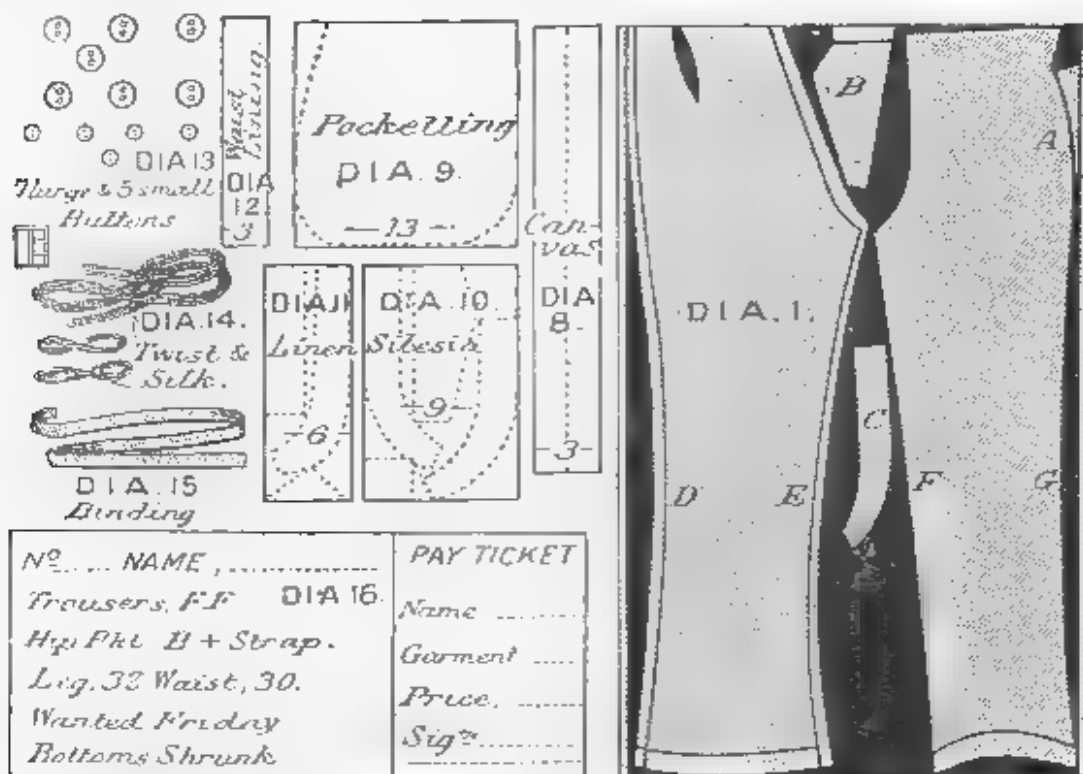 DIA 13
7 large & 5 small
Buttons
Waist
Lining
DIA
12.
3
Pocketting
DIA. 9.
13
Canvas
DIA
8.
3
DIA. 14.
Twist &
Silk.
DIA. 15
Binding
DIA 11
Linen
6
DIA. 10.
Silesia
9
DIA. 1.
A
B
C
D
E
F
G
Nº..... NAME,................
Trousers, FF DIA 16.
Hip Pkt B + Strap.
Leg. 32 Waist, 30.
Wanted Friday
Bottoms Shrunk
PAY TICKET
Name ..........
Garment .....
Price, ........
Sigre..........